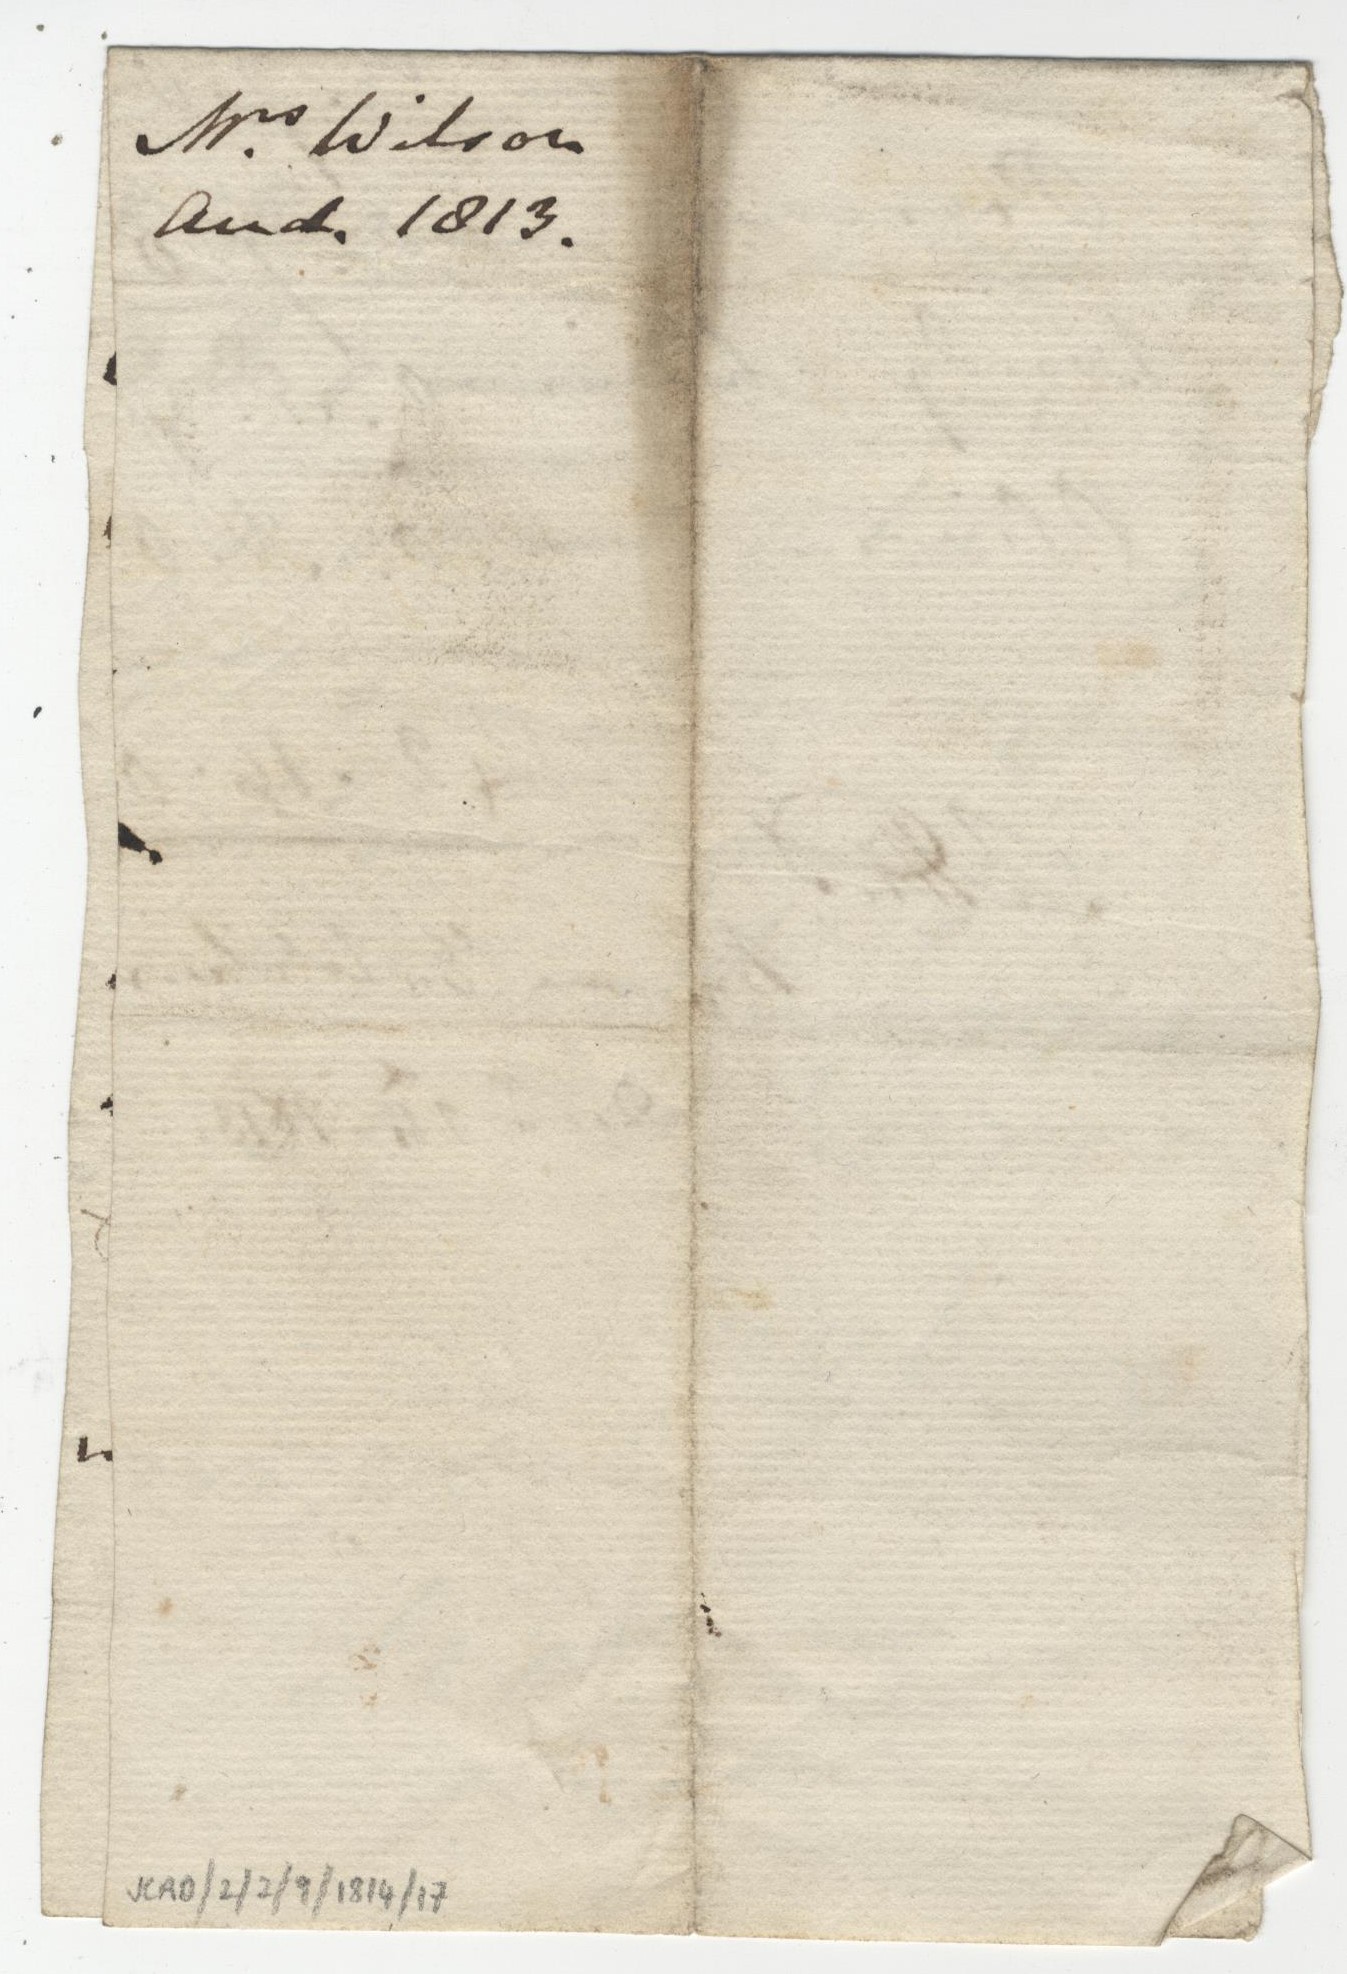 Mrs. Wilson
Aud. 1813.
JCAD/2/2/9/1814/17